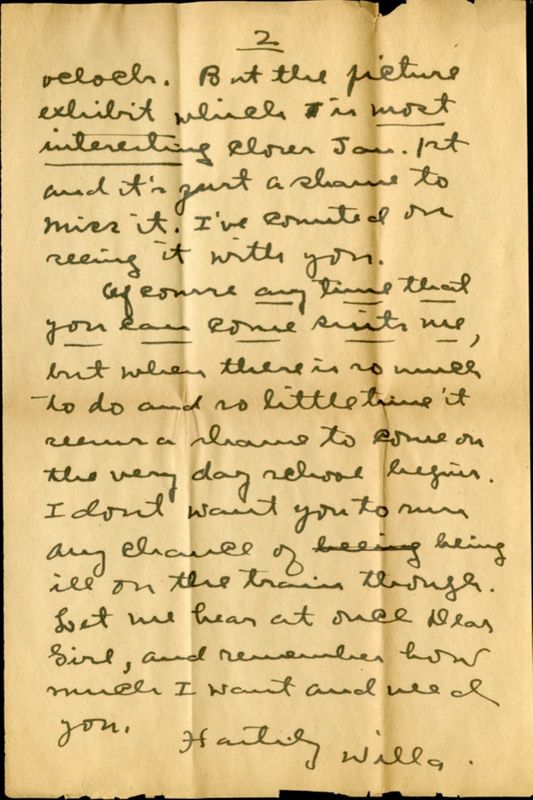 2
oclock. But the picture
exhibit which is most
interesting closes Jan. 1st
and it's just a shame to
miss it. I've counted on
seeing it with you.
Of course any time that
you can come suits me,
but when there is so much
to do and so little time it
seems a shame to come on
the very day school begins.
I dont want you to run
any chance of beeing being
ill on the train though.
Let me hear at once Dear
Girl, and remember how
much I want and need
you.
Hastily Willa.